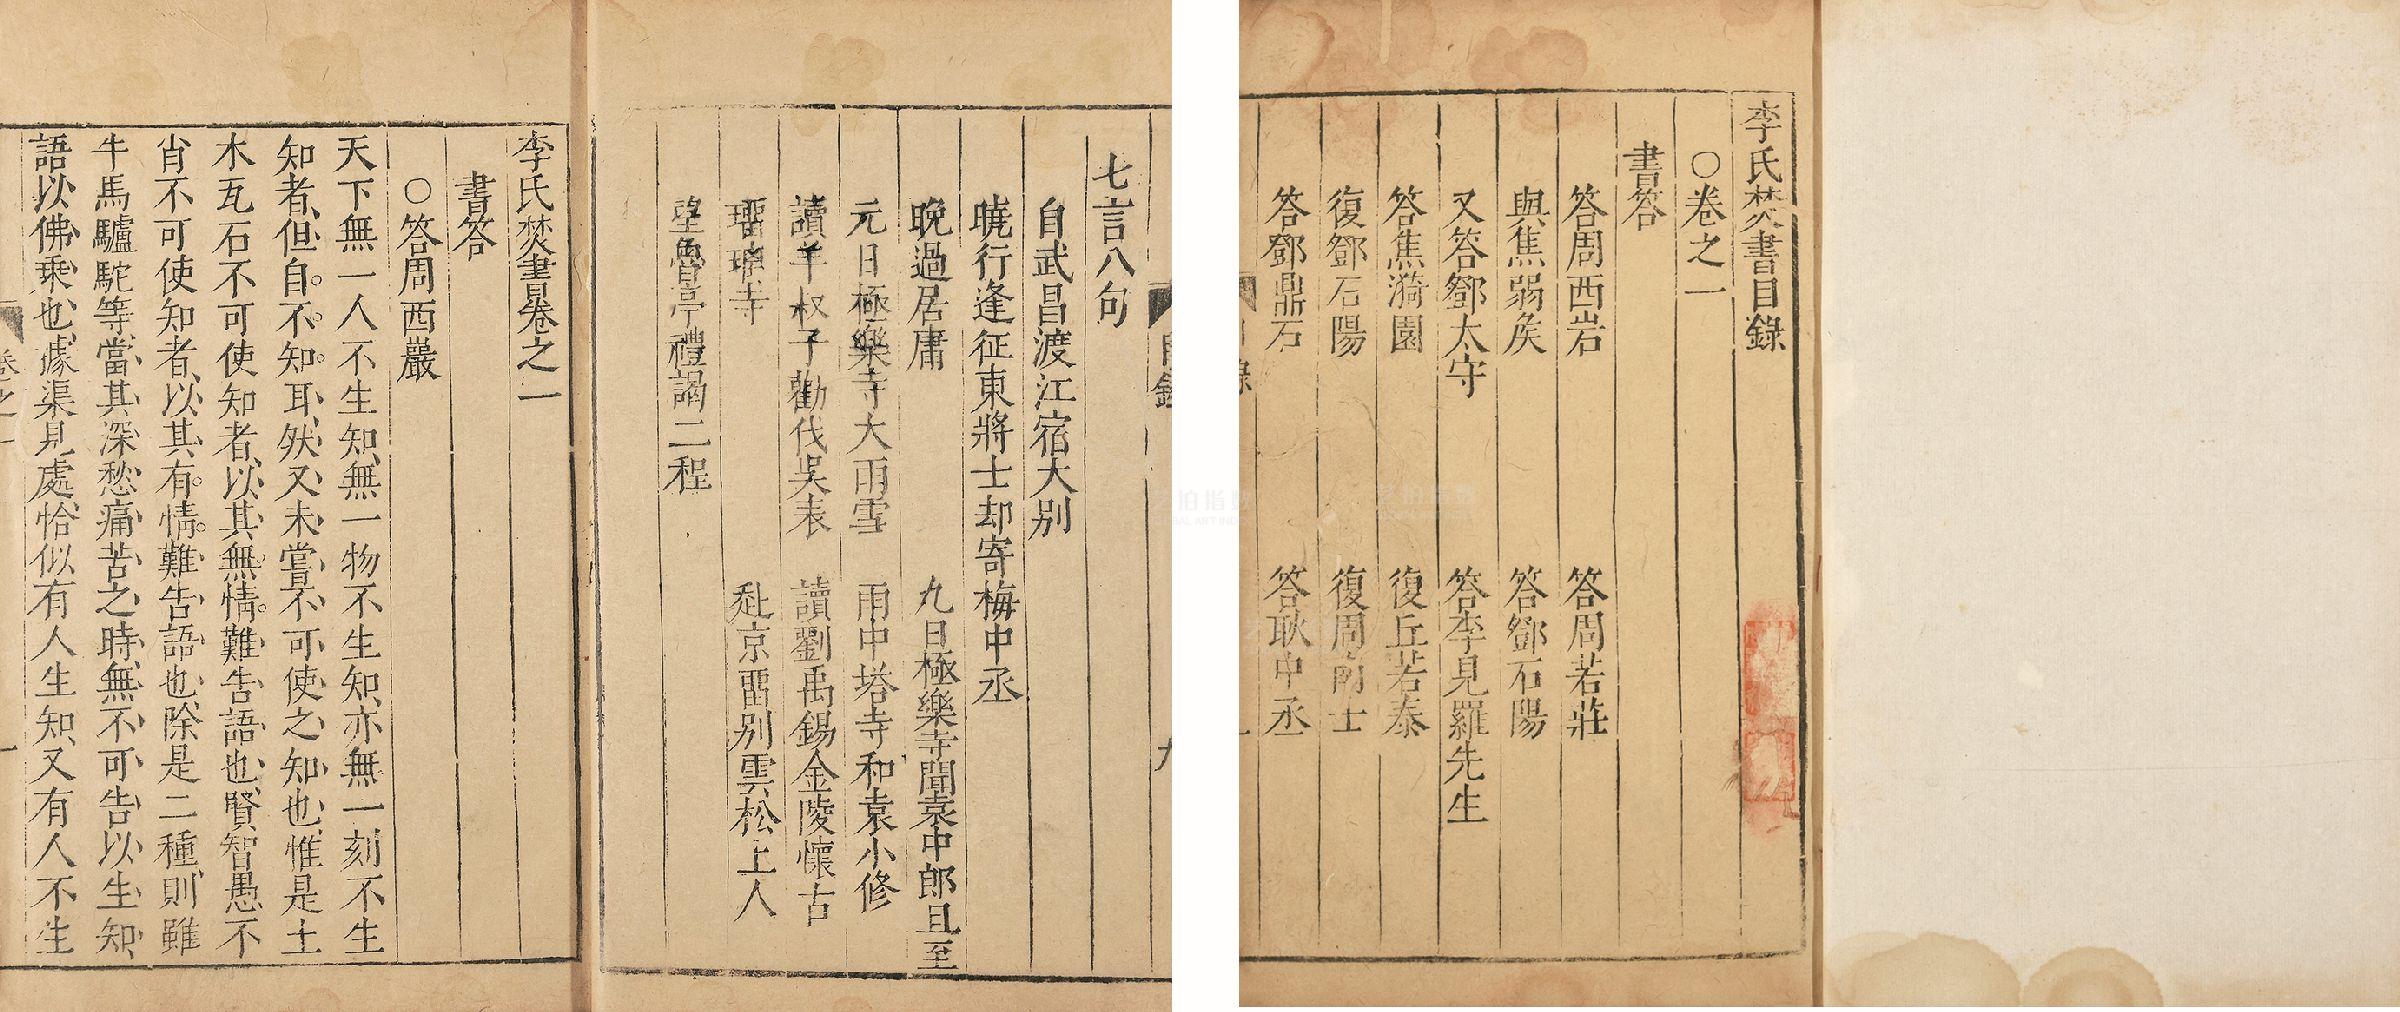 李氏焚書目錄
○卷之一
書答
答周西岩
答周若莊
與焦弱矦
答鄧石陽
又答鄧太守
答李見羅先生
答焦漪園
復丘若泰
復鄧石陽
復周南士
答鄧鼎石
答耿中丞
七言八句
自武昌渡江宿大別
曉行逢征東將士却寄梅中丞
晚過居庸
九日極樂寺聞袁中郎且至
元日極樂寺大雨雪
雨中塔寺和袁小修
讀羊叔子勸伐吳表
讀劉禹錫金陵懷古
琉璃寺
赴京留別雲松上人
望魯亭禮謁二程
李氏焚書卷之一
書答
○答周西巖
天下無一人不生知、無一物不生知、亦無一刻不生
知者、但自。不。知。耳、然又未嘗不可使之知也、惟是土
木瓦石不可使知者、以其無情。難告語也、賢智愚不
肖不可使知者、以其有。情。難告語也、除是二種、則雖
牛馬驢駝等、當其深愁痛苦之時、無不可告以生知、
語以佛乘也、據渠見處、恰似有人生知、又有人不生
卷之一